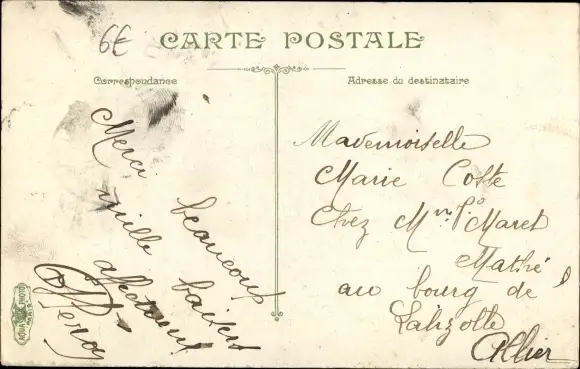 6€
CARTE POSTALE
Correspondance
Adresse du destinataire
Merci beaucoup
mille baisers
affectueux
Mademoiselle
Marie Coste
Chez Maret
Mathé
au bourg de
Lalizolle
Allier